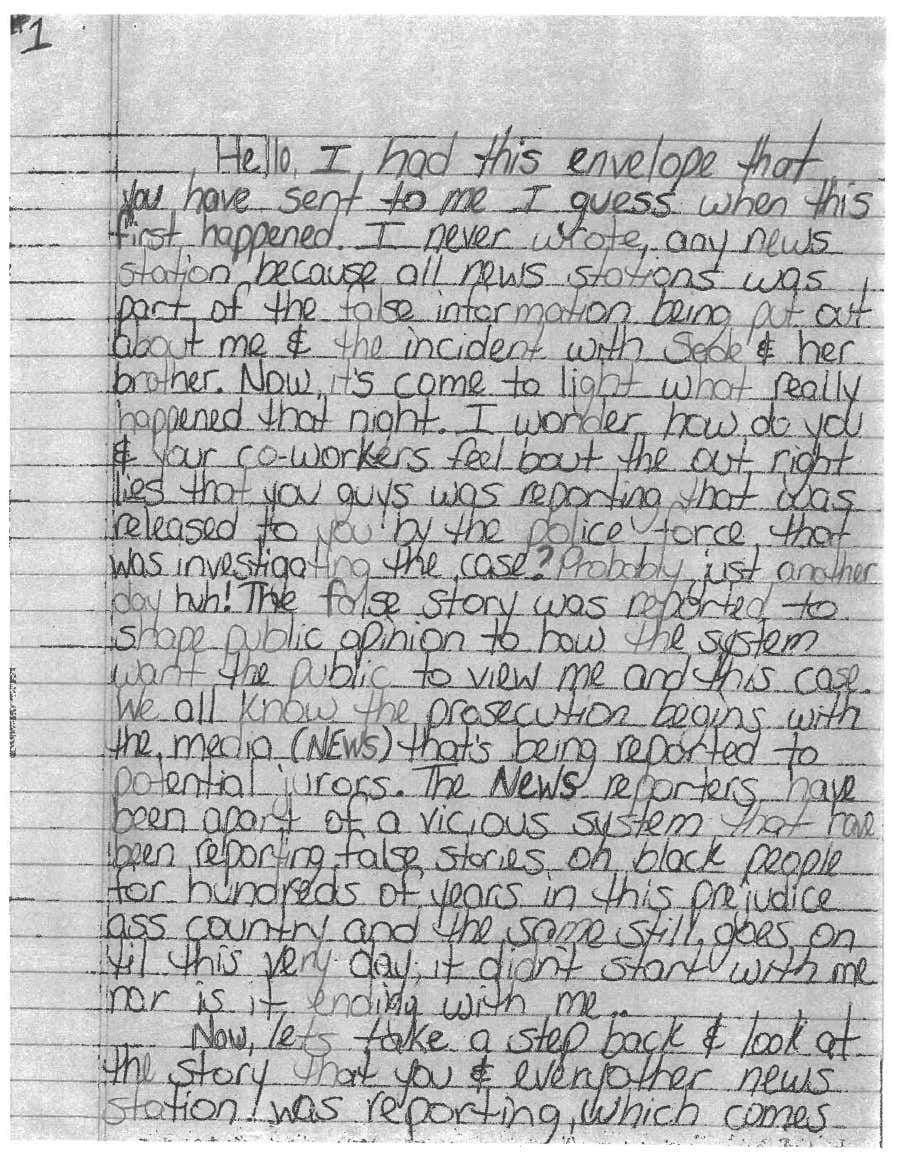 #1
Hello, I had this envelope that
you have sent to me I guess when this
first happened. I never wrote any news
station because all news stations was
part of the false information being put out
about me & the incident with Sede & her
brother. Now, it's come to light what really
happened that night. I wonder how do you
& your co-workers feel bout the out right
lies that you guys was reporting that was
released to you by the police force that
was investigating the case? Probably just another
day huh! The false story was reported to
shape public opinion to how the system
want the public to view me and this case.
We all know the prosecution begins with
the media (NEWS) that's being reported to
potential jurors. The News reporters have
been apart of a vicious system that have
been reporting false stories on black people
for hundreds of years in this prejudice
ass country and the same still goes on
til this very day, it didnt start with me
nor is it ending with me..
Now, lets take a step back & look at
the story that you & everyother news
station was reporting, which comes